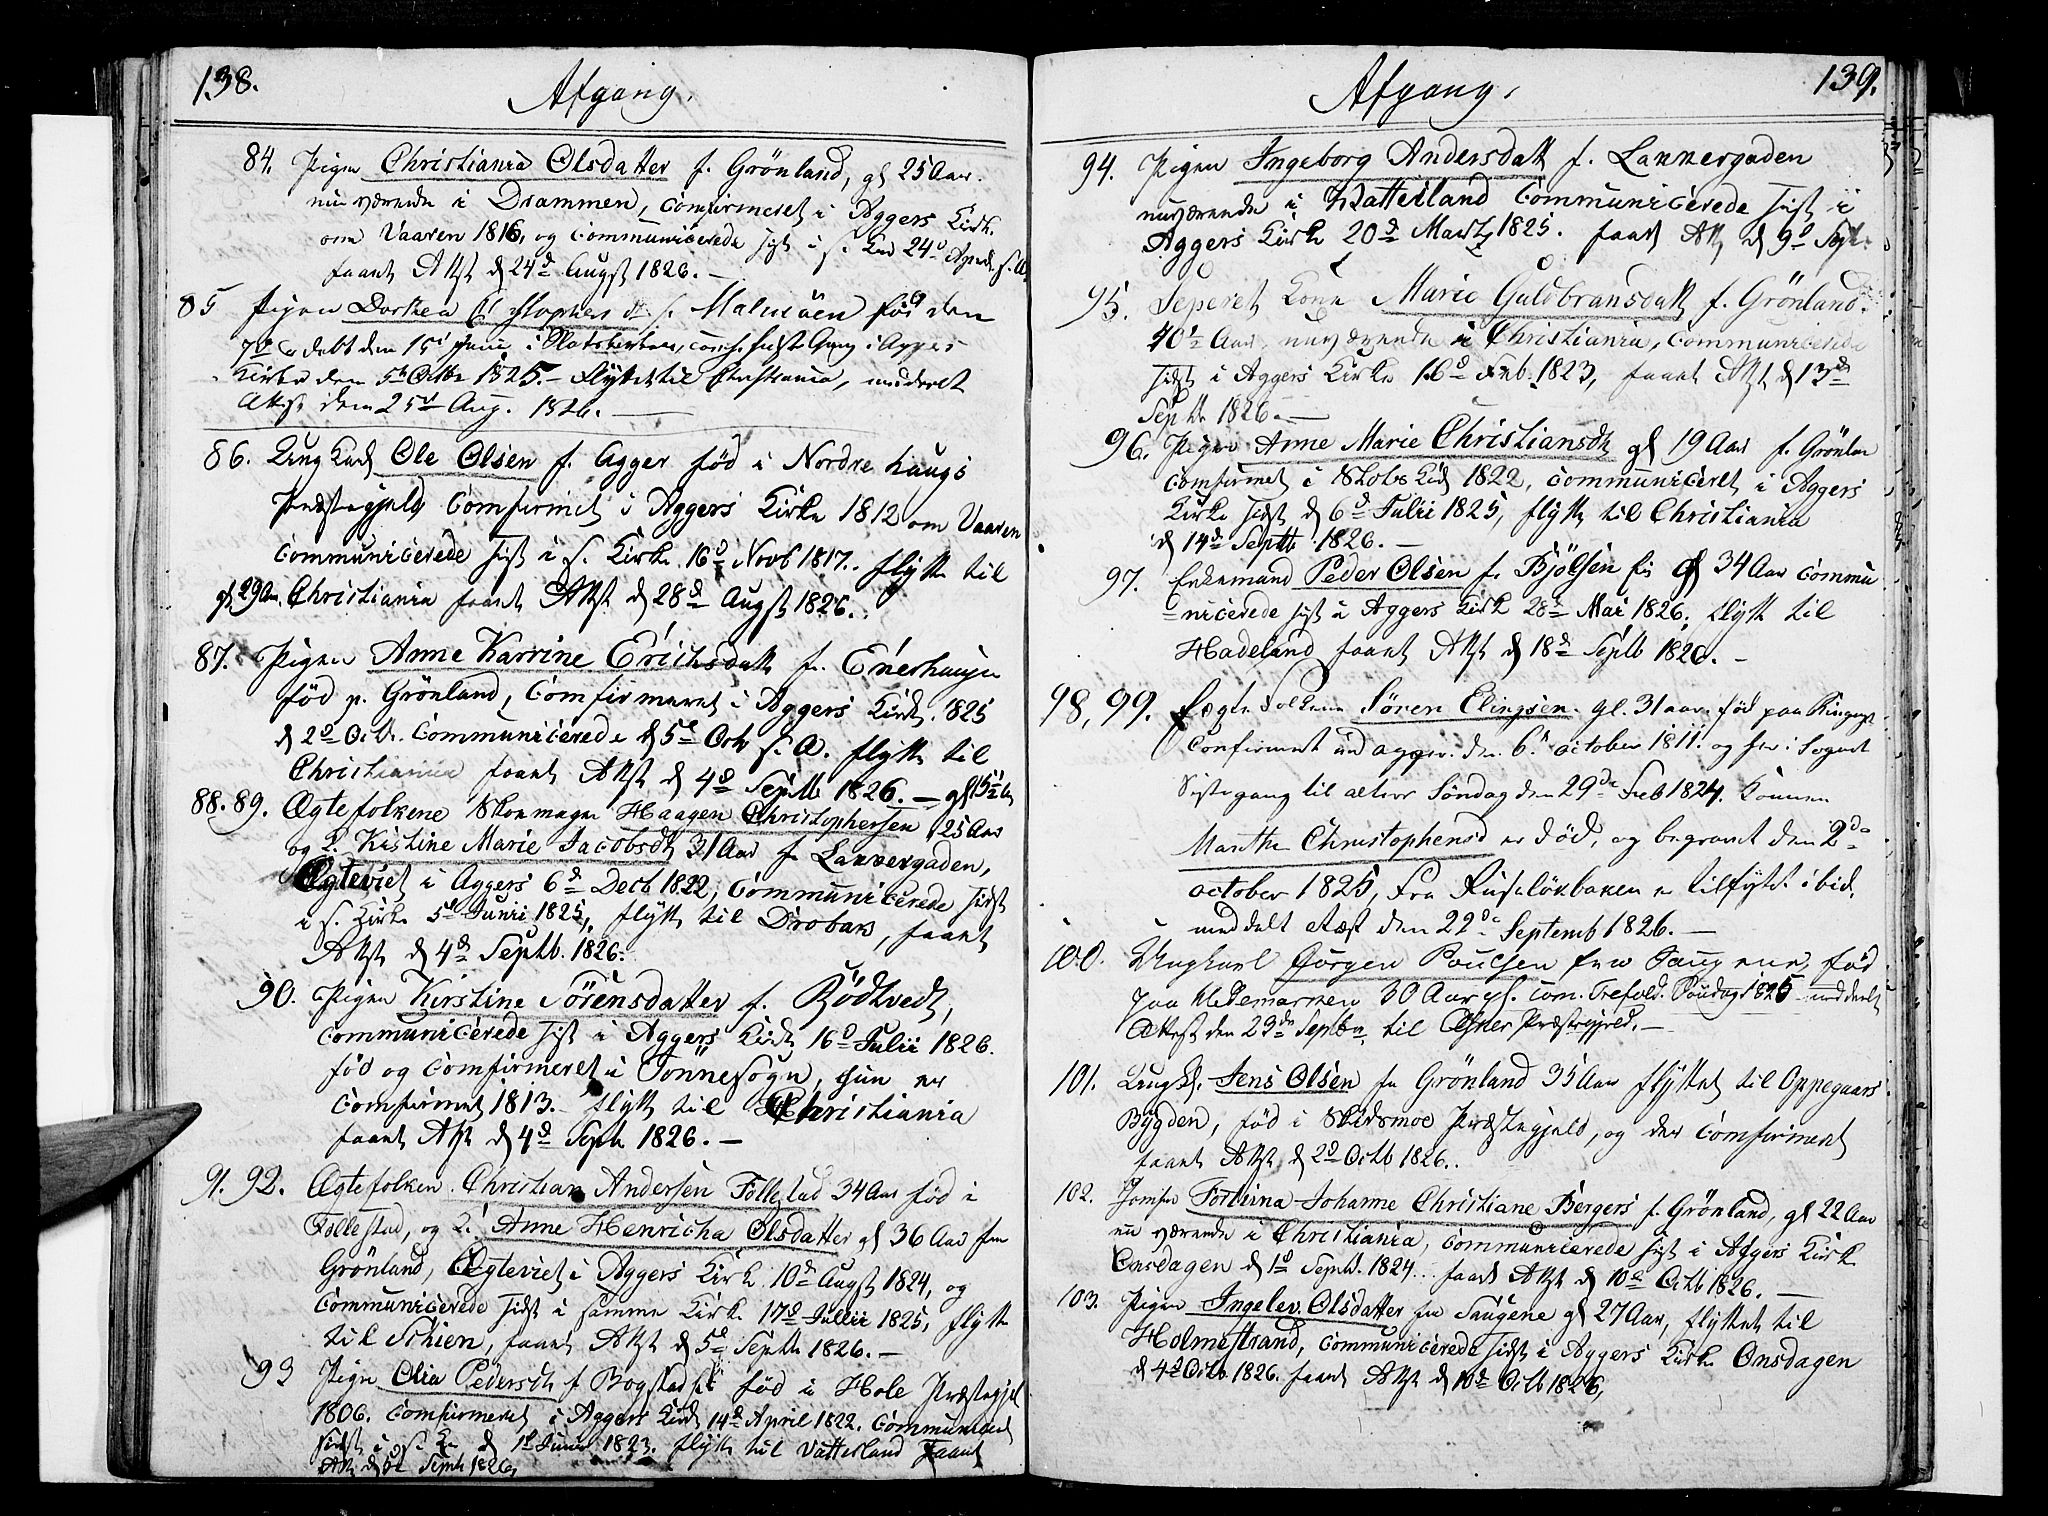 138.
Afgang.
84. Pigen Christiania Olsdatter f. Grönland, gl 25 Aar.
nuværende i Drammen, Comfirmeret i Aggers Kirk.
om Vaaren 1816, og Communicerede sidst i s. 24d
faaet Attst d 24d Augst 1826. —
85 Pigen Dorthea f. Malmöen föd den
döbt den 15d i Gang i Agger
Kirke dem 5te Octbr 1825. – Flyttet til Christiania, meddeelt
Attest dem 25d Aug. 1826. —
86. Ung Karl Ole Olsen f. Agger föd i Nordrehaugs
Præstegjeld Comfirmet i Aggers Kirke 1812 om Vaaren
Communicerede sidst i s. Kirke 16d Novb 1817. flytte til
gl 29 Aar. Christiania faaet Attst d 28d Augst 1826.
87. Pigen Anne Karrine Erichsdatt fr. Enerhaugen
föd p. Grönland, Comfirmeret i Aggers Kirke 1825
d 2d Octb. Communicerede d 5d Octb s. A. flytte til
Christiania faaet Attst d 4d Septb 1826. —
88. 89. Ægtefolkene Skomager Haagen Christophersen 25 Aar
og K. Kistine Marie Jacobsdt 31 Aar fr Lakkergaden,
Ægteviet i Aggers 6d Decb 1822, Communicerede sidst
i s. Kirke 5d Junii 1825, flytte til Drobak, faaet
Attst d 4d Septb. 1826.
90. Pigen Kirstine Sörensdatter f. Rödtvedt,
Communicerede sidst i Aggers Kirke 16d Julii 1826.
föd og Comfirmeret i Tönnesogn, hun er
Comfirmet 1813. – flytt til Christiania
faaet Attst d 4d Septb 1826. —
91. 92. Ægtefolken Christian Andersen Follestad 34 Aar föd i
Follestad, og K. Anne Henricha Olsdatter gl 36 Aar fra
Grönland, Ægteviet i Aggers Kirke 10d Augst 1824, og
Communicerede sidst i samme Kirke 17d Julii 1825, flytte
til Schien, faaet Attst d 5d Septb 1826. —
93 Pigen Olia Pedersdt f Bogstad föd i Hole Præstegjel
1806. Comfirmeret i Aggers Kirke 14d April 1822. Communiceret
sidst i s. K. d 1d Junii 1823. flytte til Vatterland faaet
Attst d 5d Septb 1826.
139.
Afgang.
94. Pigen Ingeborg Andersdatt f. Lakkergaden
nuværende i Watterland Communicerede sidst i
Aggers Kirke 20d Martz 1825. faaet Att d 9d Sept.
95. Seperet Kone Marie Guldbransdatt f. Grönland.
40½ Aar, nuværende i Christiania, Communicerede
sidst i Aggers Kirke 16d Feb. 1823, faaet Attst d 13d
Septb 1826. —
96. Pigen Anne Marie Christiansdt gl 19 Aar f. Grönlan
Comfirmet i 1822, Communiceret i Aggers
Kirke sidst d 6d Julii 1825, flytte til Christiania
d 14d Septb 1826. —
97. Enkemand Peder Olsen fr Bjölsen gl 34 Aar Commu
nicerede sidst i Aggers Kirke 28d Mai 1826, flytt til
Hadeland faaet Attst d 18d Septb 1826. —
98, 99. Ægte Folkene Sören Elingsen. gl. 31 aar. föd paa Ringerige
Confirmert ud agger. den 6d october 1811. og her i Sognet
Siste gang til alters Söndag den 29de Feb 1824. Konnen
Marthe Christophensd er död, og begravet den 2de
october 1825, Fra Ruselökbaken er tilfyt. i bid.
meddelt atæst den 22de Septemb 1826. —
100. Ungkarl Jörgen Poulsen fra Saugene, föd
paa Hedemarken 30 Aar gl. Com. Trefold. Söndag 1826 meddeelt
Attest den 23de Septbr til Præstegjeld. —
101. Ungk. Jens Olsen fra Grönland 35 Aar flyttet til Oppegaars
Bygden, föd i Skedsmoe Præstegjeld, og der Comfirmeret
faaet Attst d 2d Octb 1826.
102. Jomfr Johanne Christiane Bergers f. Grönland, gl 22 Aar
nu værende i Christiania, Communicerede sidst i Aggers Kirk
Onsdagen d 1d Septb. 1824. faaet Attst d 10d Octb 1826. —
103. Pigen Ingelev Olsdatter fra Saugene gl 27 Aar, flyttet til
Holmestrand, Communicerede sidst i Aggers Kirke Onsdagen
d 4d Octb. 1826. faaet Attst d 10d Octb 1826,